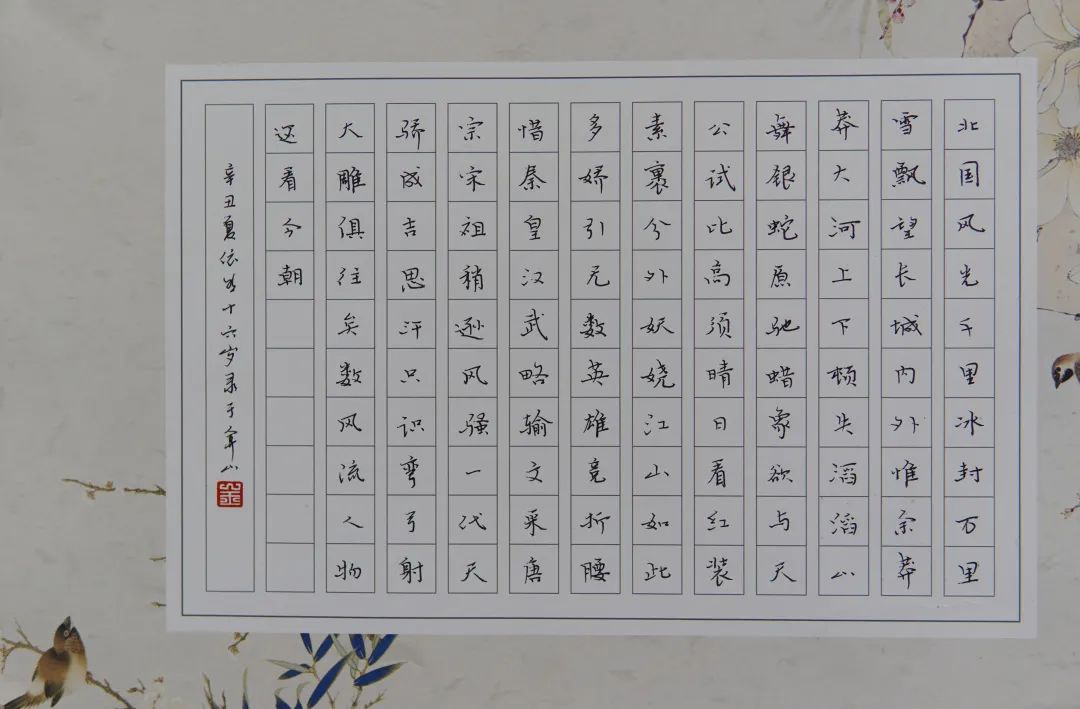 北国风光千里冰封万里
雪飘望长城内外惟余莽
莽大河上下顿失滔滔山
舞银蛇原驰蜡象欲与天
公试比高须晴日看红装
素裹分外妖娆江山如此
多娇引无数英雄竞折腰
惜秦皇汉武略输文采唐
宗宋祖稍逊风骚一代天
骄成吉思汗只识弯弓射
大雕俱往矣数风流人物
还看今朝
辛丑夏依十六岁录于山